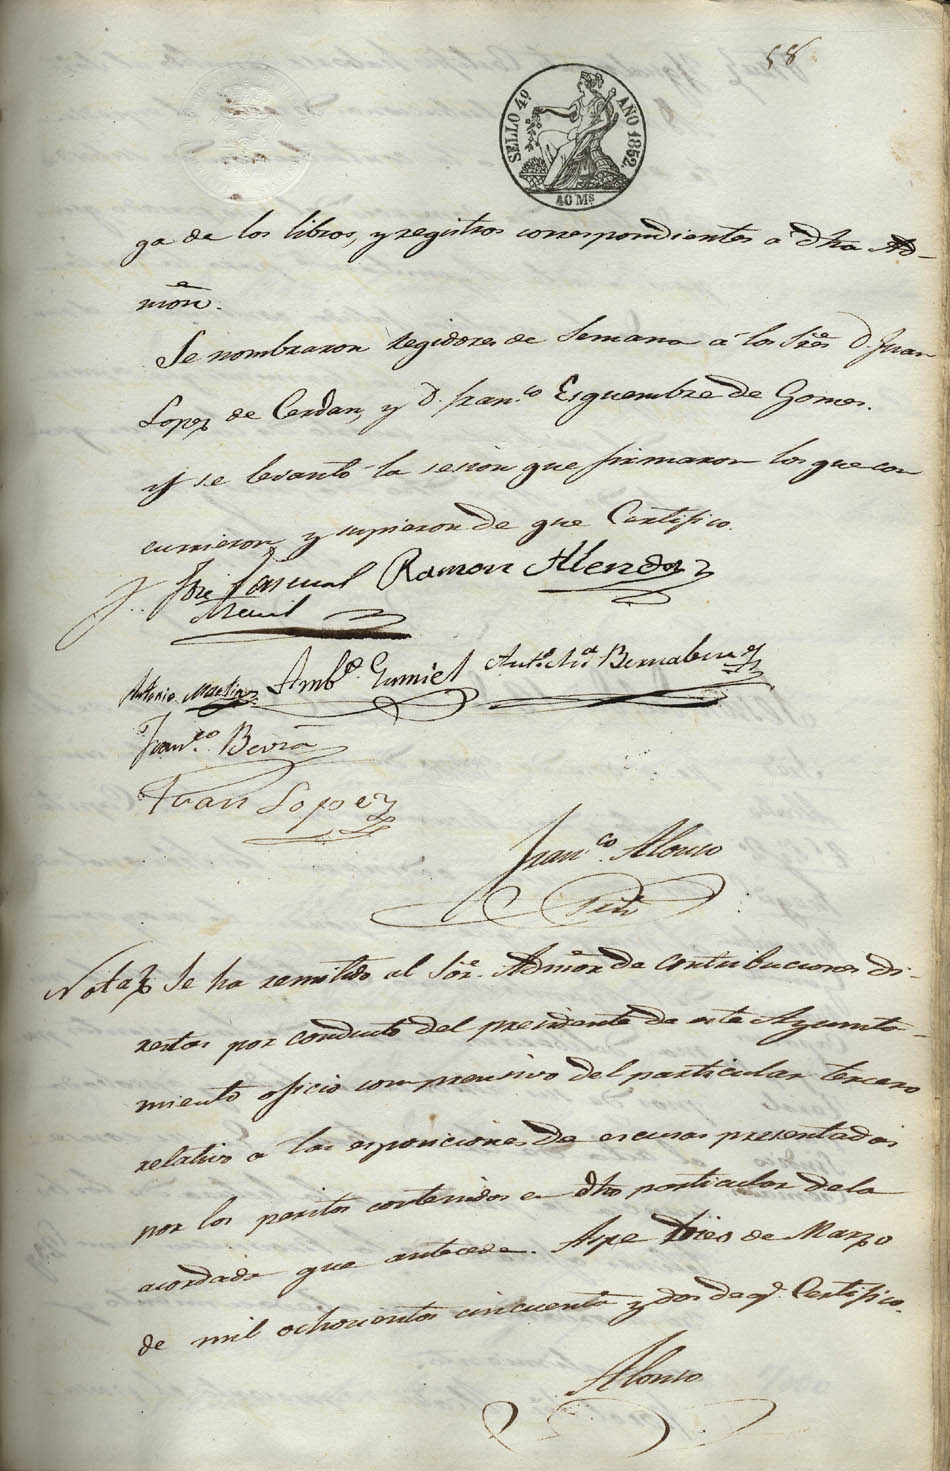 58
SELLO 4º AÑO 1852.
40 Ms
ga de los libros, y registros correspondientes a dha Ad-
mon.
Se nombraron regidores de semana á los Sres D. Juan
Lopez de Cerdan, y D. Fran.co Esquembre de Gomes.
y se levantó la sesion que firmaron los que con
currieron y supieron de que Certifico.
José Pascual Ramon Alendoz
Antonio Martinez Amb.o Gumiel Ant.o M.a Bernabeu
Fran.co Beviá
Juan Lopez
Fran.co Alonso
Nota Se ha remitido al Sor. Admor de contribuciones di-
rectas por conducto del presidente de este Ayunta-
miento oficio comprensivo del particular tercero
relativo a las esposiciones de escusas presentadas
por los peritos contenidos en dho particular de la
acordada que antecede. Aspe tres de Marzo
de mil ochocientos cincuenta y dos de q.e Certifico.
Alonso